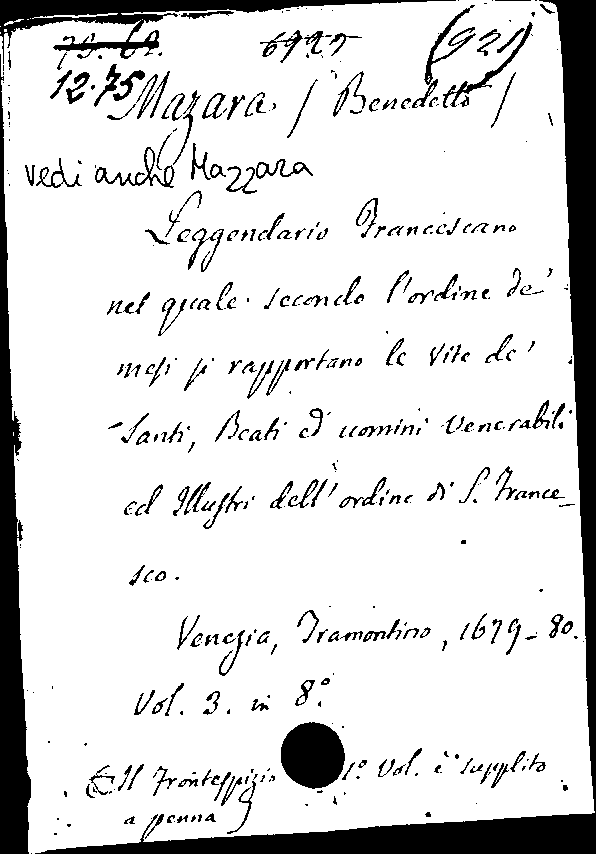 6927 (921)
12.75
Mazara / Benedetto /
vedi anche Mazzara
Leggendario Francescano
nel quale secondo l'ordine de'
mesi si rapportano le Vite de'
Santi, Beati ed uomini Venerabili
ed Illustri dell'ordine di S. France_
sco.
Venezia, Tramontino, 1679-80.
Vol. 3. in 8°
(Il Frontespizio 1° Vol. è supplito
a penna)